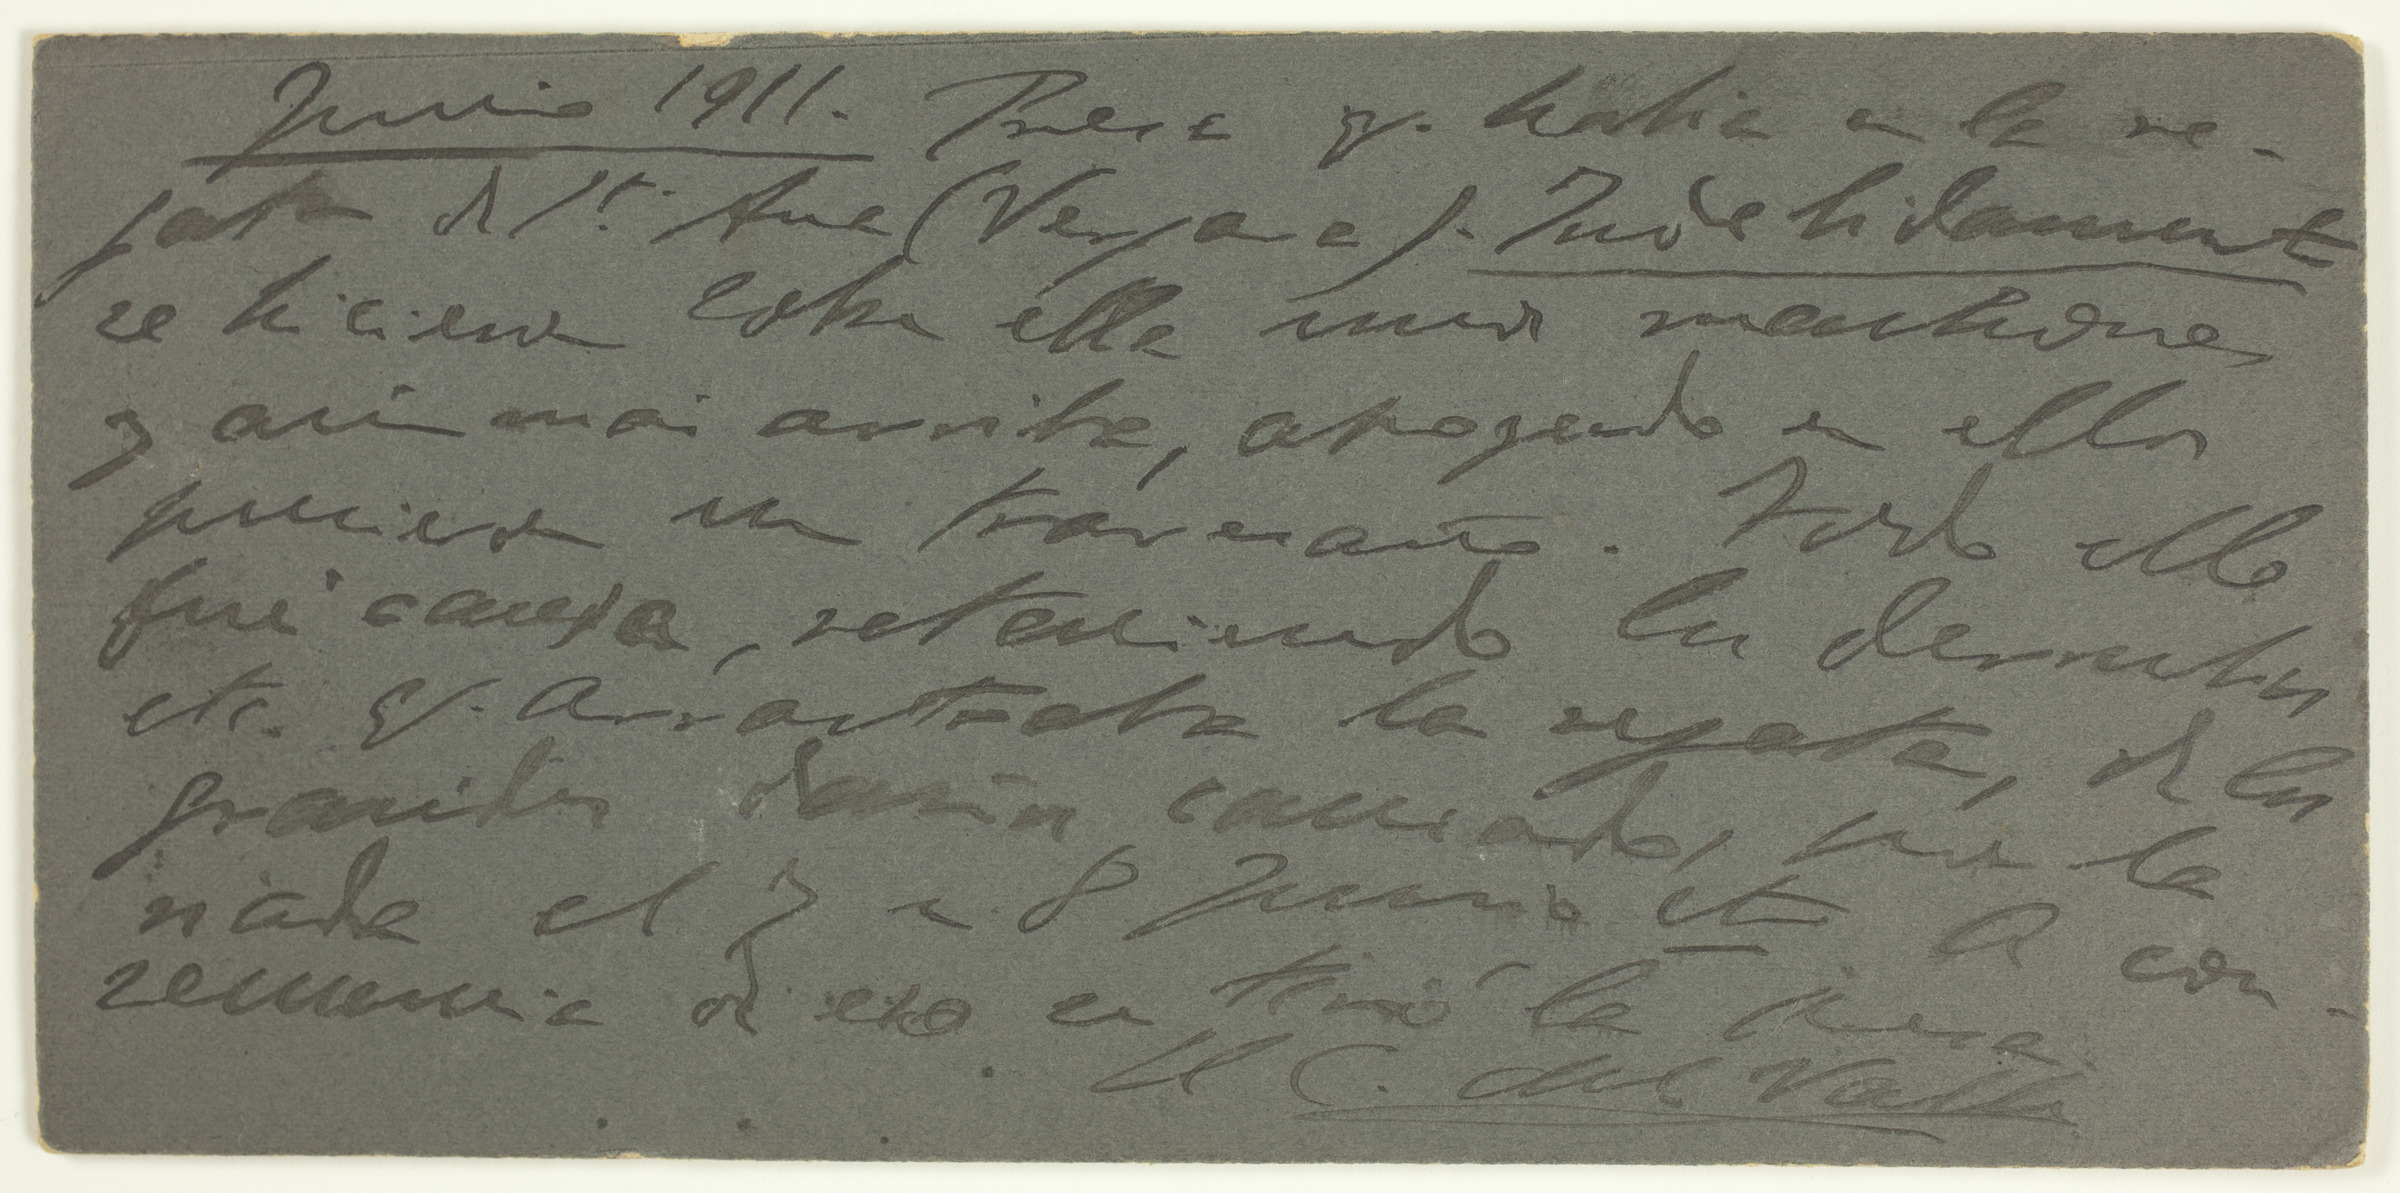 Junio 1911. Presa q. habia en la re-
gata de Sta. Ana (Vergara). Indebidamente
se hicieron sobre ella unos machones
y asi mas arriba, apoyando en ellos
pusieron un travesaño. Todo ello
fué causa, reteniendo los derrubios
etc. q. arrastraba la regata, de los
grandes daños causados, por la
riada el 7 u 8 Junio etc A con-
secuencia de eso se tiró la presa.
El C. del Valle